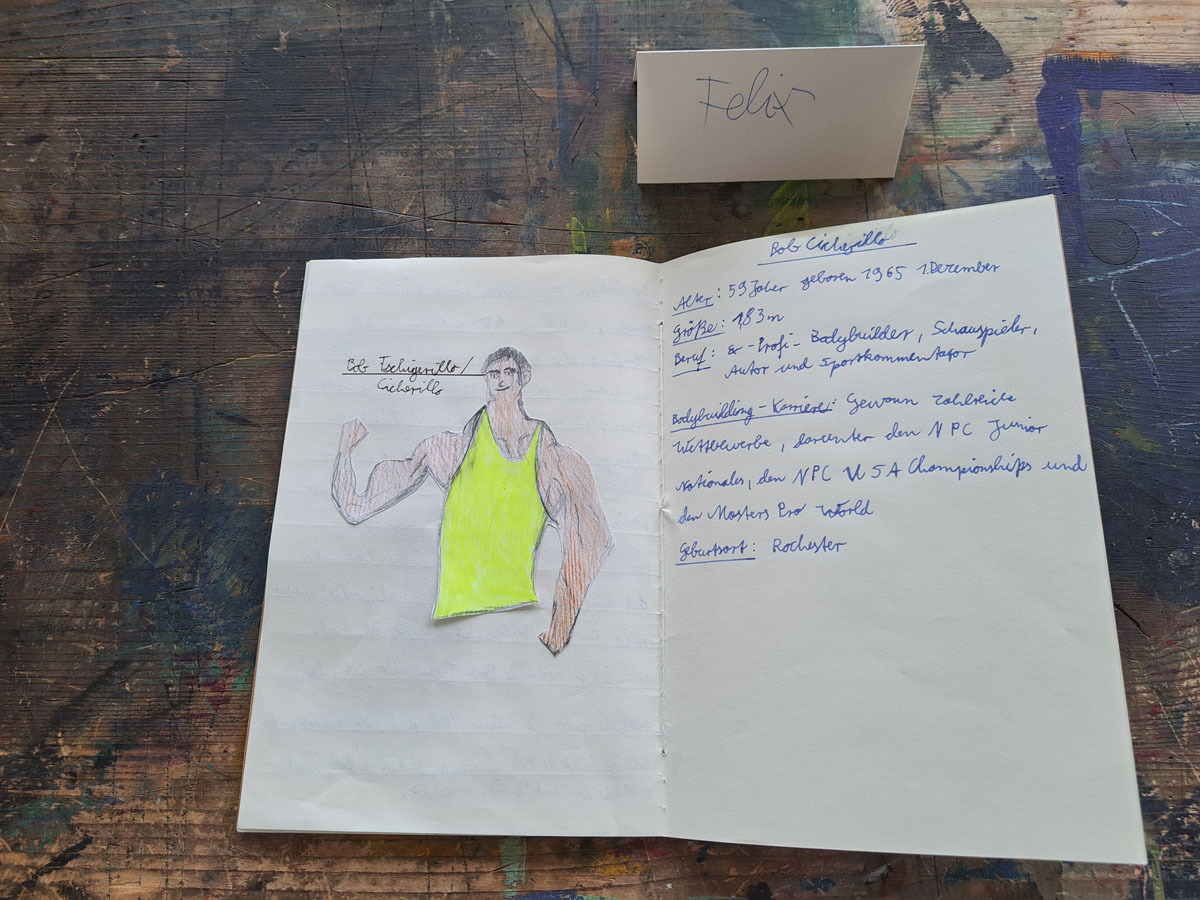 Felix
Bob Tschigerillo/
Cicherillo
Bob Cicherillo
Alter: 59 Jaher geboren 1965 1.Dezember
Größe: 1,83 m
Beruf: Ex-Profi-Bodybuilder, Schauspieler,
Autor und Sportkommentator
Bodybuilding-Karriere: Gewann zahlreiche
Wettbewerbe, darunter den NPC Junior
Nationales, den NPC USA Championships und
den Masters Pro World
Geburtsort: Rochester